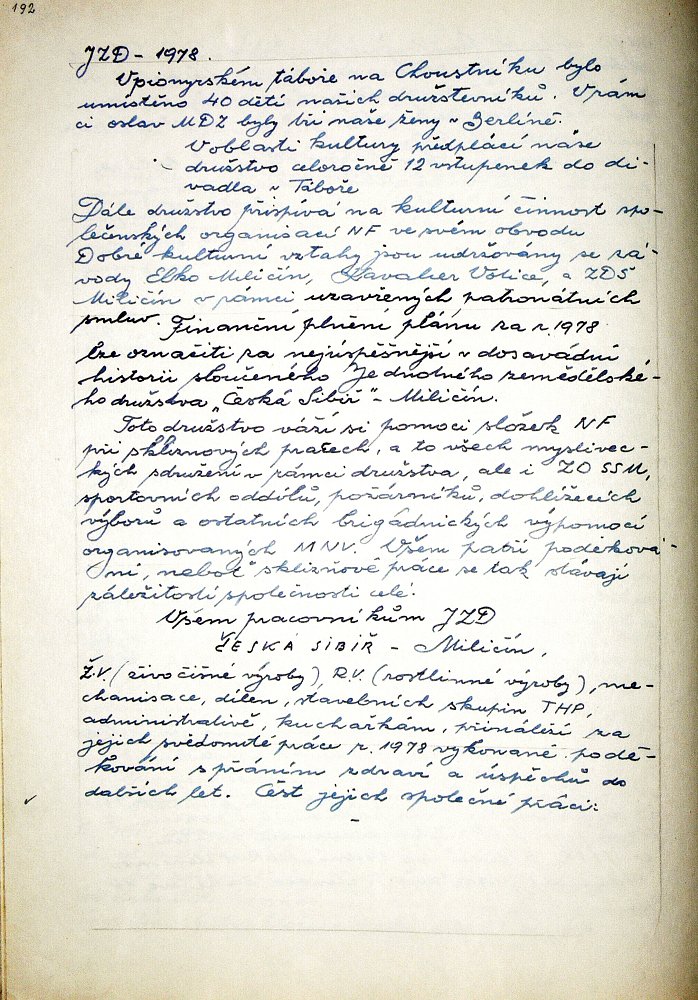 192
JZD - 1978.
V pionýrském táboře na Choustníku bylo
umístěno 40 dětí našich družstevníků. V rám
ci oslav MDŽ byly tři naše ženy v Berlíně.
V oblasti kultury předplácí naše
družstvo celoročně 12 vstupenek do di-
vadla v Táboře
Dále družstvo přispívá na kulturní činnost spo-
lečenských organisací NF ve svém obvodu
Dobré kulturní vztahy jsou udržovány se zá-
vody Elko Miličín, Kavalier Votice, a ZDŠ
Miličín v rámci uzavřených patronátních
smluv. Finanční plnění plánu za r. 1978
lze označiti za nejúspěšnější v dosavádní
historii sloučeného Jednotného zemědělské-
ho družstva "Česká Sibiř" - Miličín.
Toto družstvo váží si pomoci složek NF
při sklizňových pracech, a to všech myslivec-
kých sdružení v rámci družstva, ale i ZO SSM,
sportovních oddílů, požárníků, dohlížecích
výborů a ostatních brigádnických výpomocí
organisovaných MNV. Všem patří poděková-
ní, neboť sklizňové práce se tak stávají
záležitostí společnosti celé.
Všem pracovníkům JZD
ČESKÁ SIBIŘ - Miličín,
Ž.V. (živočišné výroby), R.V. (rostlinné výroby), me-
chanisace, dílen, stavebních skupin THP,
administrativě, kuchařkám, přináleží za
jejich svědomité práce r. 1978 vykonané podě-
kování s přáním zdraví a úspěchů do
dalších let. Čest jejich společné práci!